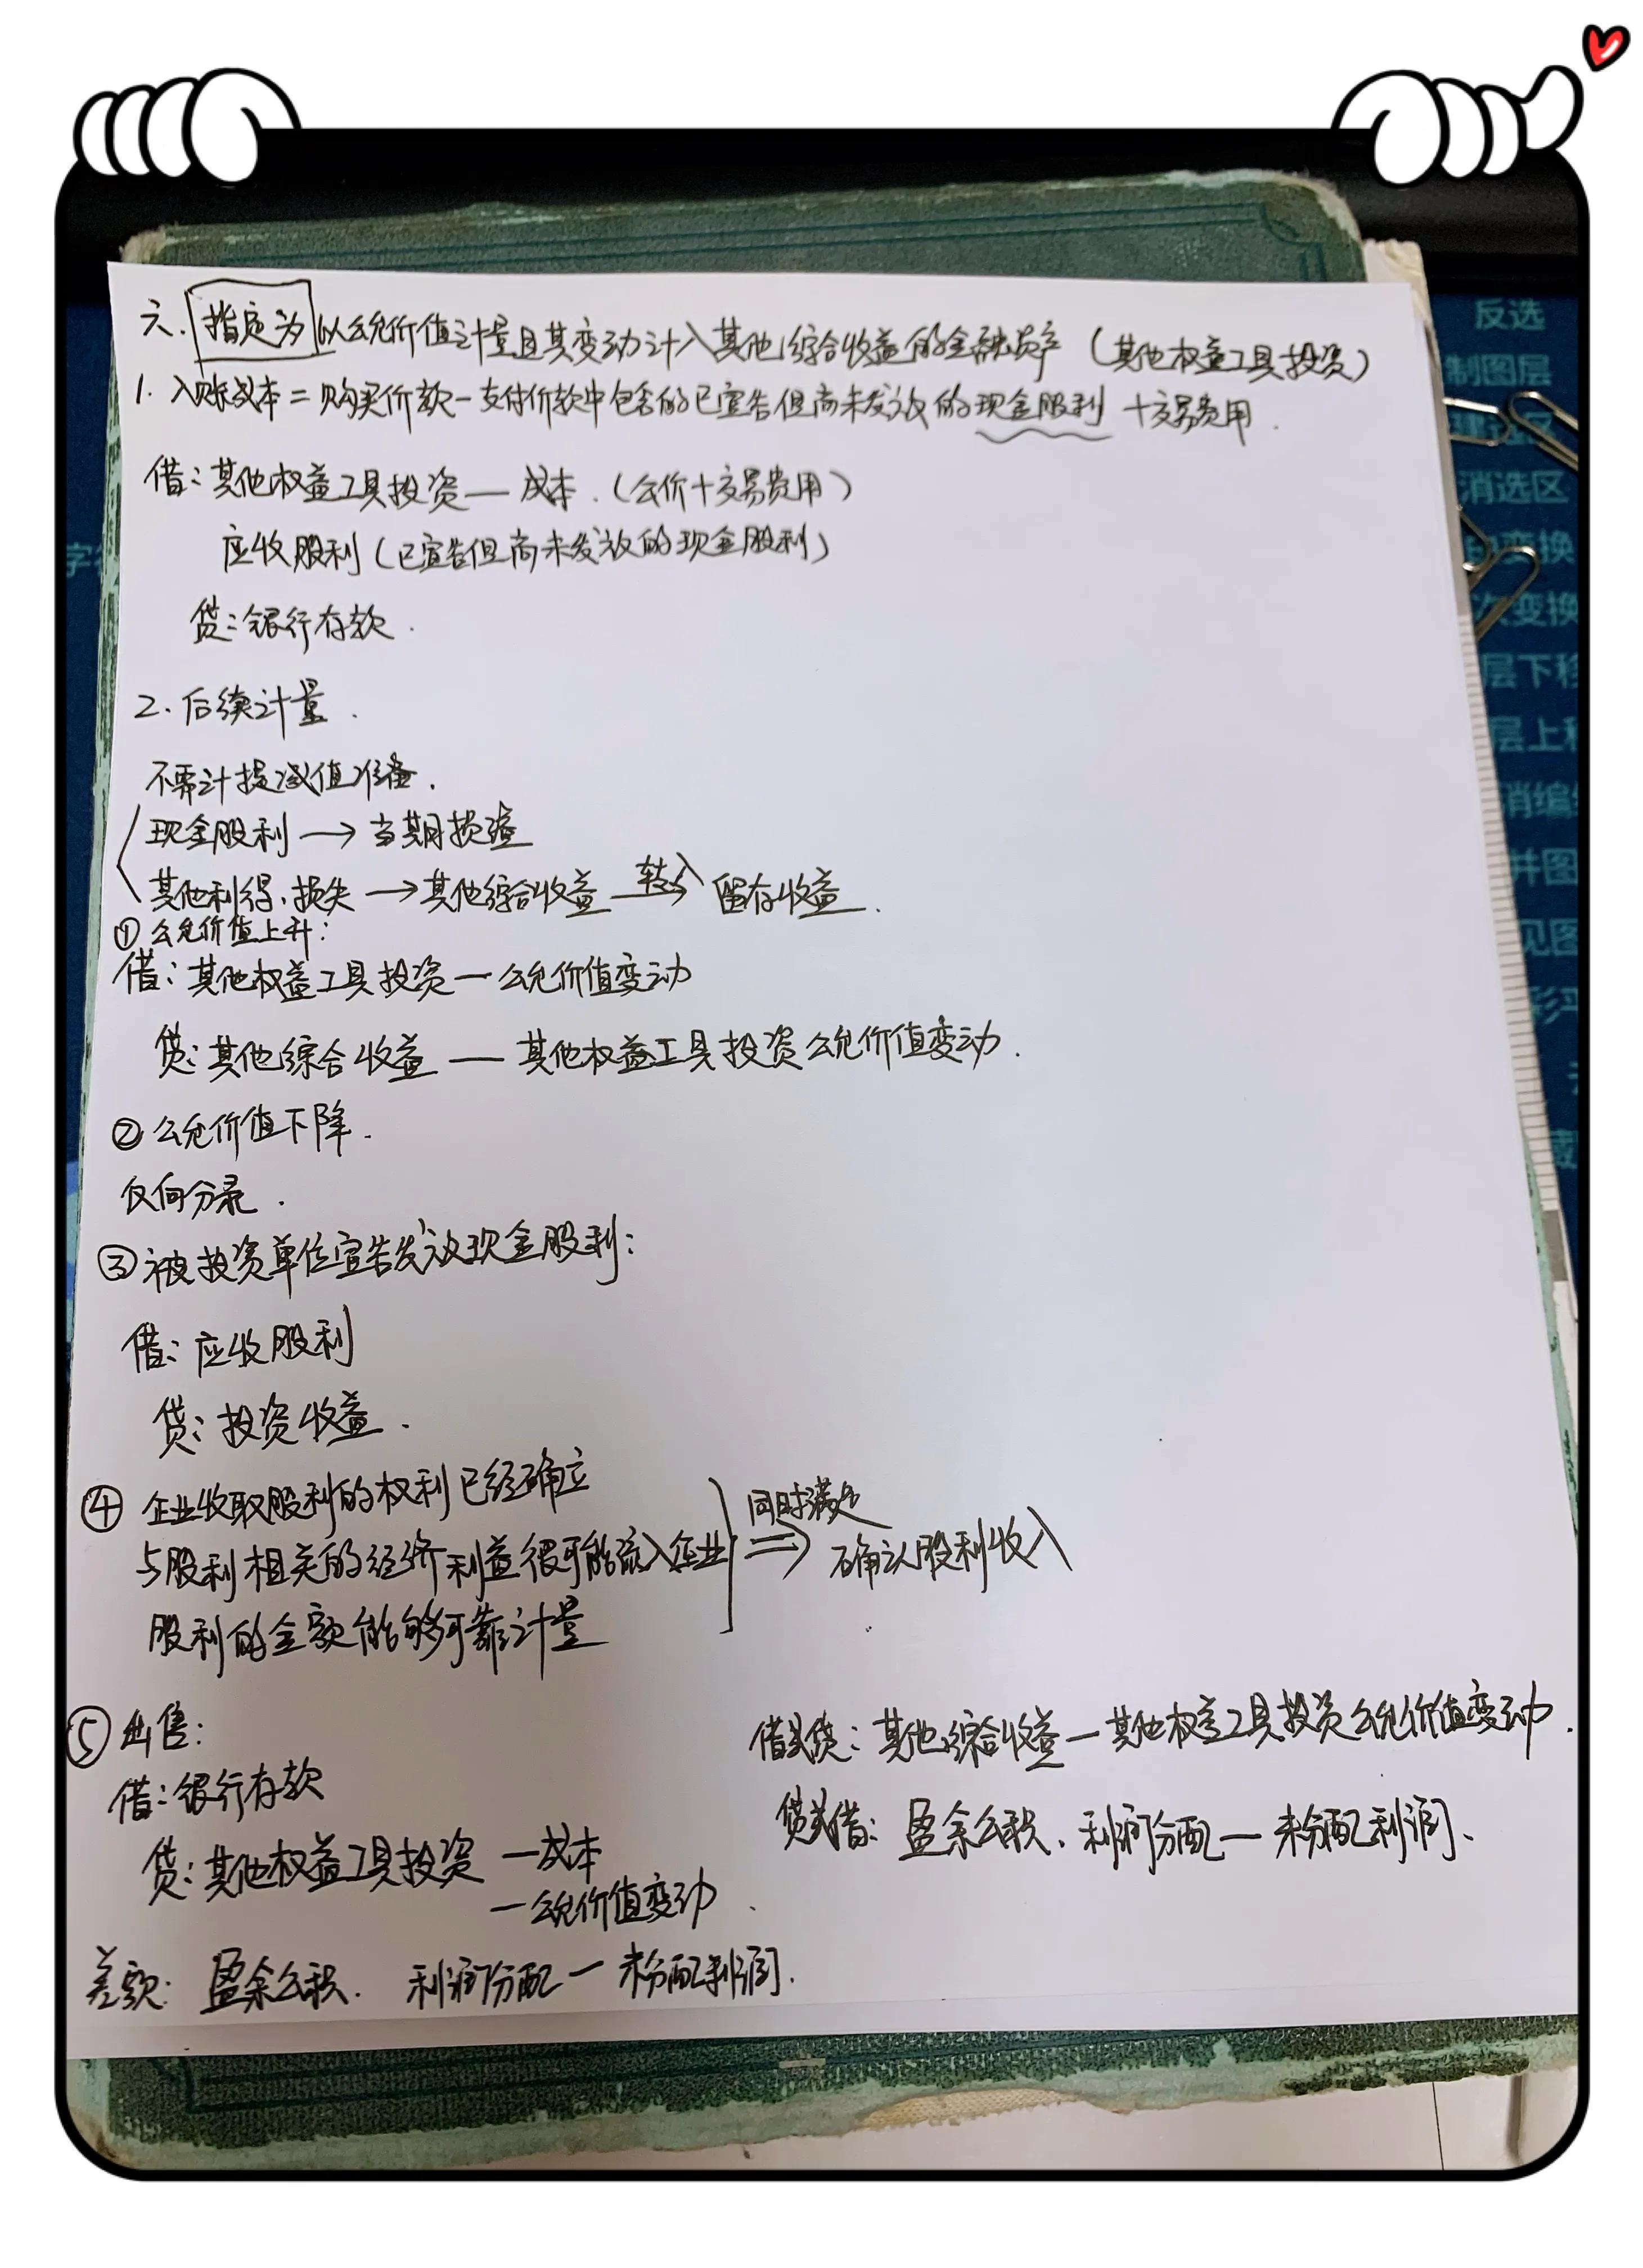 六. 指定为以公允价值计量且其变动计入其他综合收益的金融资产 (其他权益工具投资)
1. 入账成本 = 购买价款 - 支付价款中包含的已宣告但尚未发放的现金股利 + 交易费用.
借: 其他权益工具投资 — 成本. (公价+交易费用)
应收股利 (已宣告但尚未发放的现金股利)
贷: 银行存款.
2. 后续计量.
不需计提减值准备.
现金股利 → 当期损益
其他利得、损失 → 其他综合收益 转入→ 留存收益.
① 公允价值上升:
借: 其他权益工具投资 — 公允价值变动
贷: 其他综合收益 — 其他权益工具投资公允价值变动.
② 公允价值下降.
反向分录.
③ 被投资单位宣告发放现金股利:
借: 应收股利
贷: 投资收益.
④ 企业收取股利的权利已经确立
与股利相关的经济利益很可能流入企业
股利的金额能够可靠计量
同时满足
⇒ 确认股利收入
⑤ 出售:
借: 银行存款
贷: 其他权益工具投资 — 成本
— 公允价值变动.
差额: 盈余公积. 利润分配 — 未分配利润.
借或贷: 其他综合收益 — 其他权益工具投资公允价值变动.
贷或借: 盈余公积、利润分配 — 未分配利润、
反选
制图层
建选区
消选区
变换
次变换
层下移
层上移
消编
并图
见图